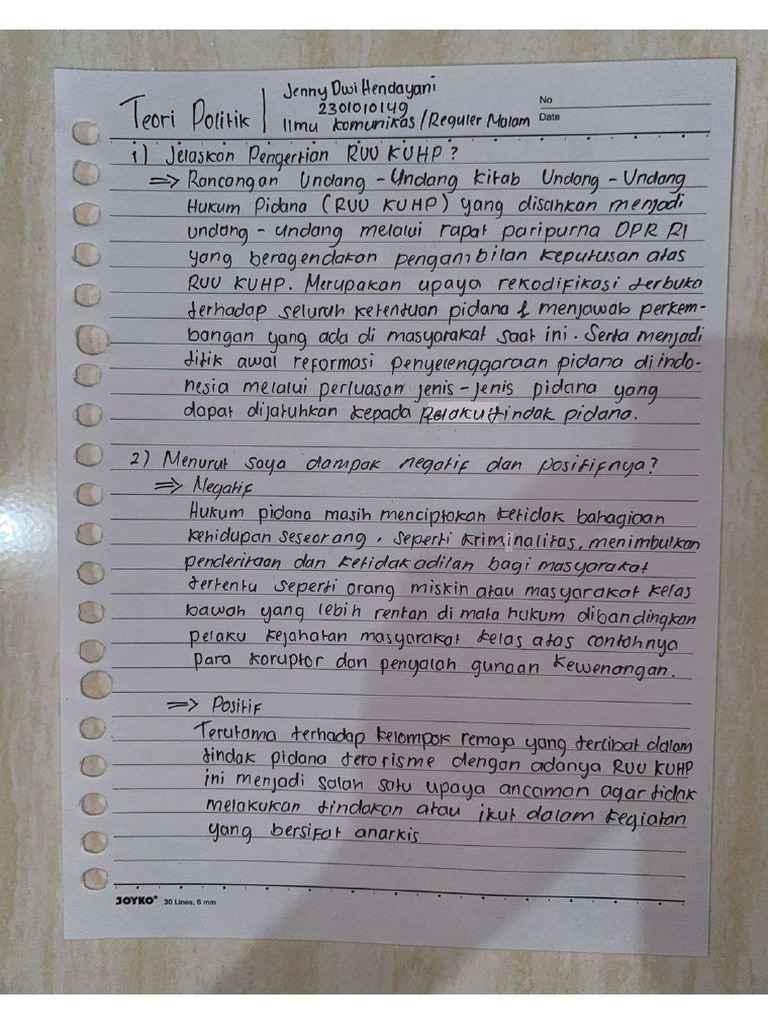 Teori Politik
Jenny Dwi Hendayani
2301010149
Ilmu Komunikas/Reguler Malam
No
Date
1) Jelaskan Pengertian RUU KUHP?
⇒ Rancangan Undang-Undang Kitab Undang-Undang
Hukum Pidana (RUU KUHP) yang disahkan menjadi
undang-undang melalui rapat paripurna DPR RI
yang beragendakan pengambilan keputusan atas
RUU KUHP. Merupakan upaya rekodifikasi terbuka
terhadap seluruh ketentuan pidana & menjawab perkem-
bangan yang ada di masyarakat saat ini. Serta menjadi
titik awal reformasi penyelenggaraan pidana di indo-
nesia melalui perluasan jenis-jenis pidana yang
dapat dijatuhkan kepada pelaku tindak pidana.
2) Menurut saya dampak negatif dan positifnya?
⇒ Negatif
Hukum pidana masih menciptakan ketidak bahagiaan
kehidupan seseorang, seperti kriminalitas, menimbulkan
penderitaan dan ketidakadilan bagi masyarakat
tertentu seperti orang miskin atau masyarakat kelas
bawah yang lebih rentan di mata hukum dibandingkan
pelaku kejahatan masyarakat kelas atas contohnya
para koruptor dan penyalah gunaan kewenangan.
⇒ Positif
Terutama terhadap kelompok remaja yang terlibat dalam
tindak pidana terorisme dengan adanya RUU KUHP
ini menjadi salah satu upaya ancaman agar tidak
melakukan tindakan atau ikut dalam kegiatan
yang bersifat anarkis
JOYKO® 30 Lines, 6 mm